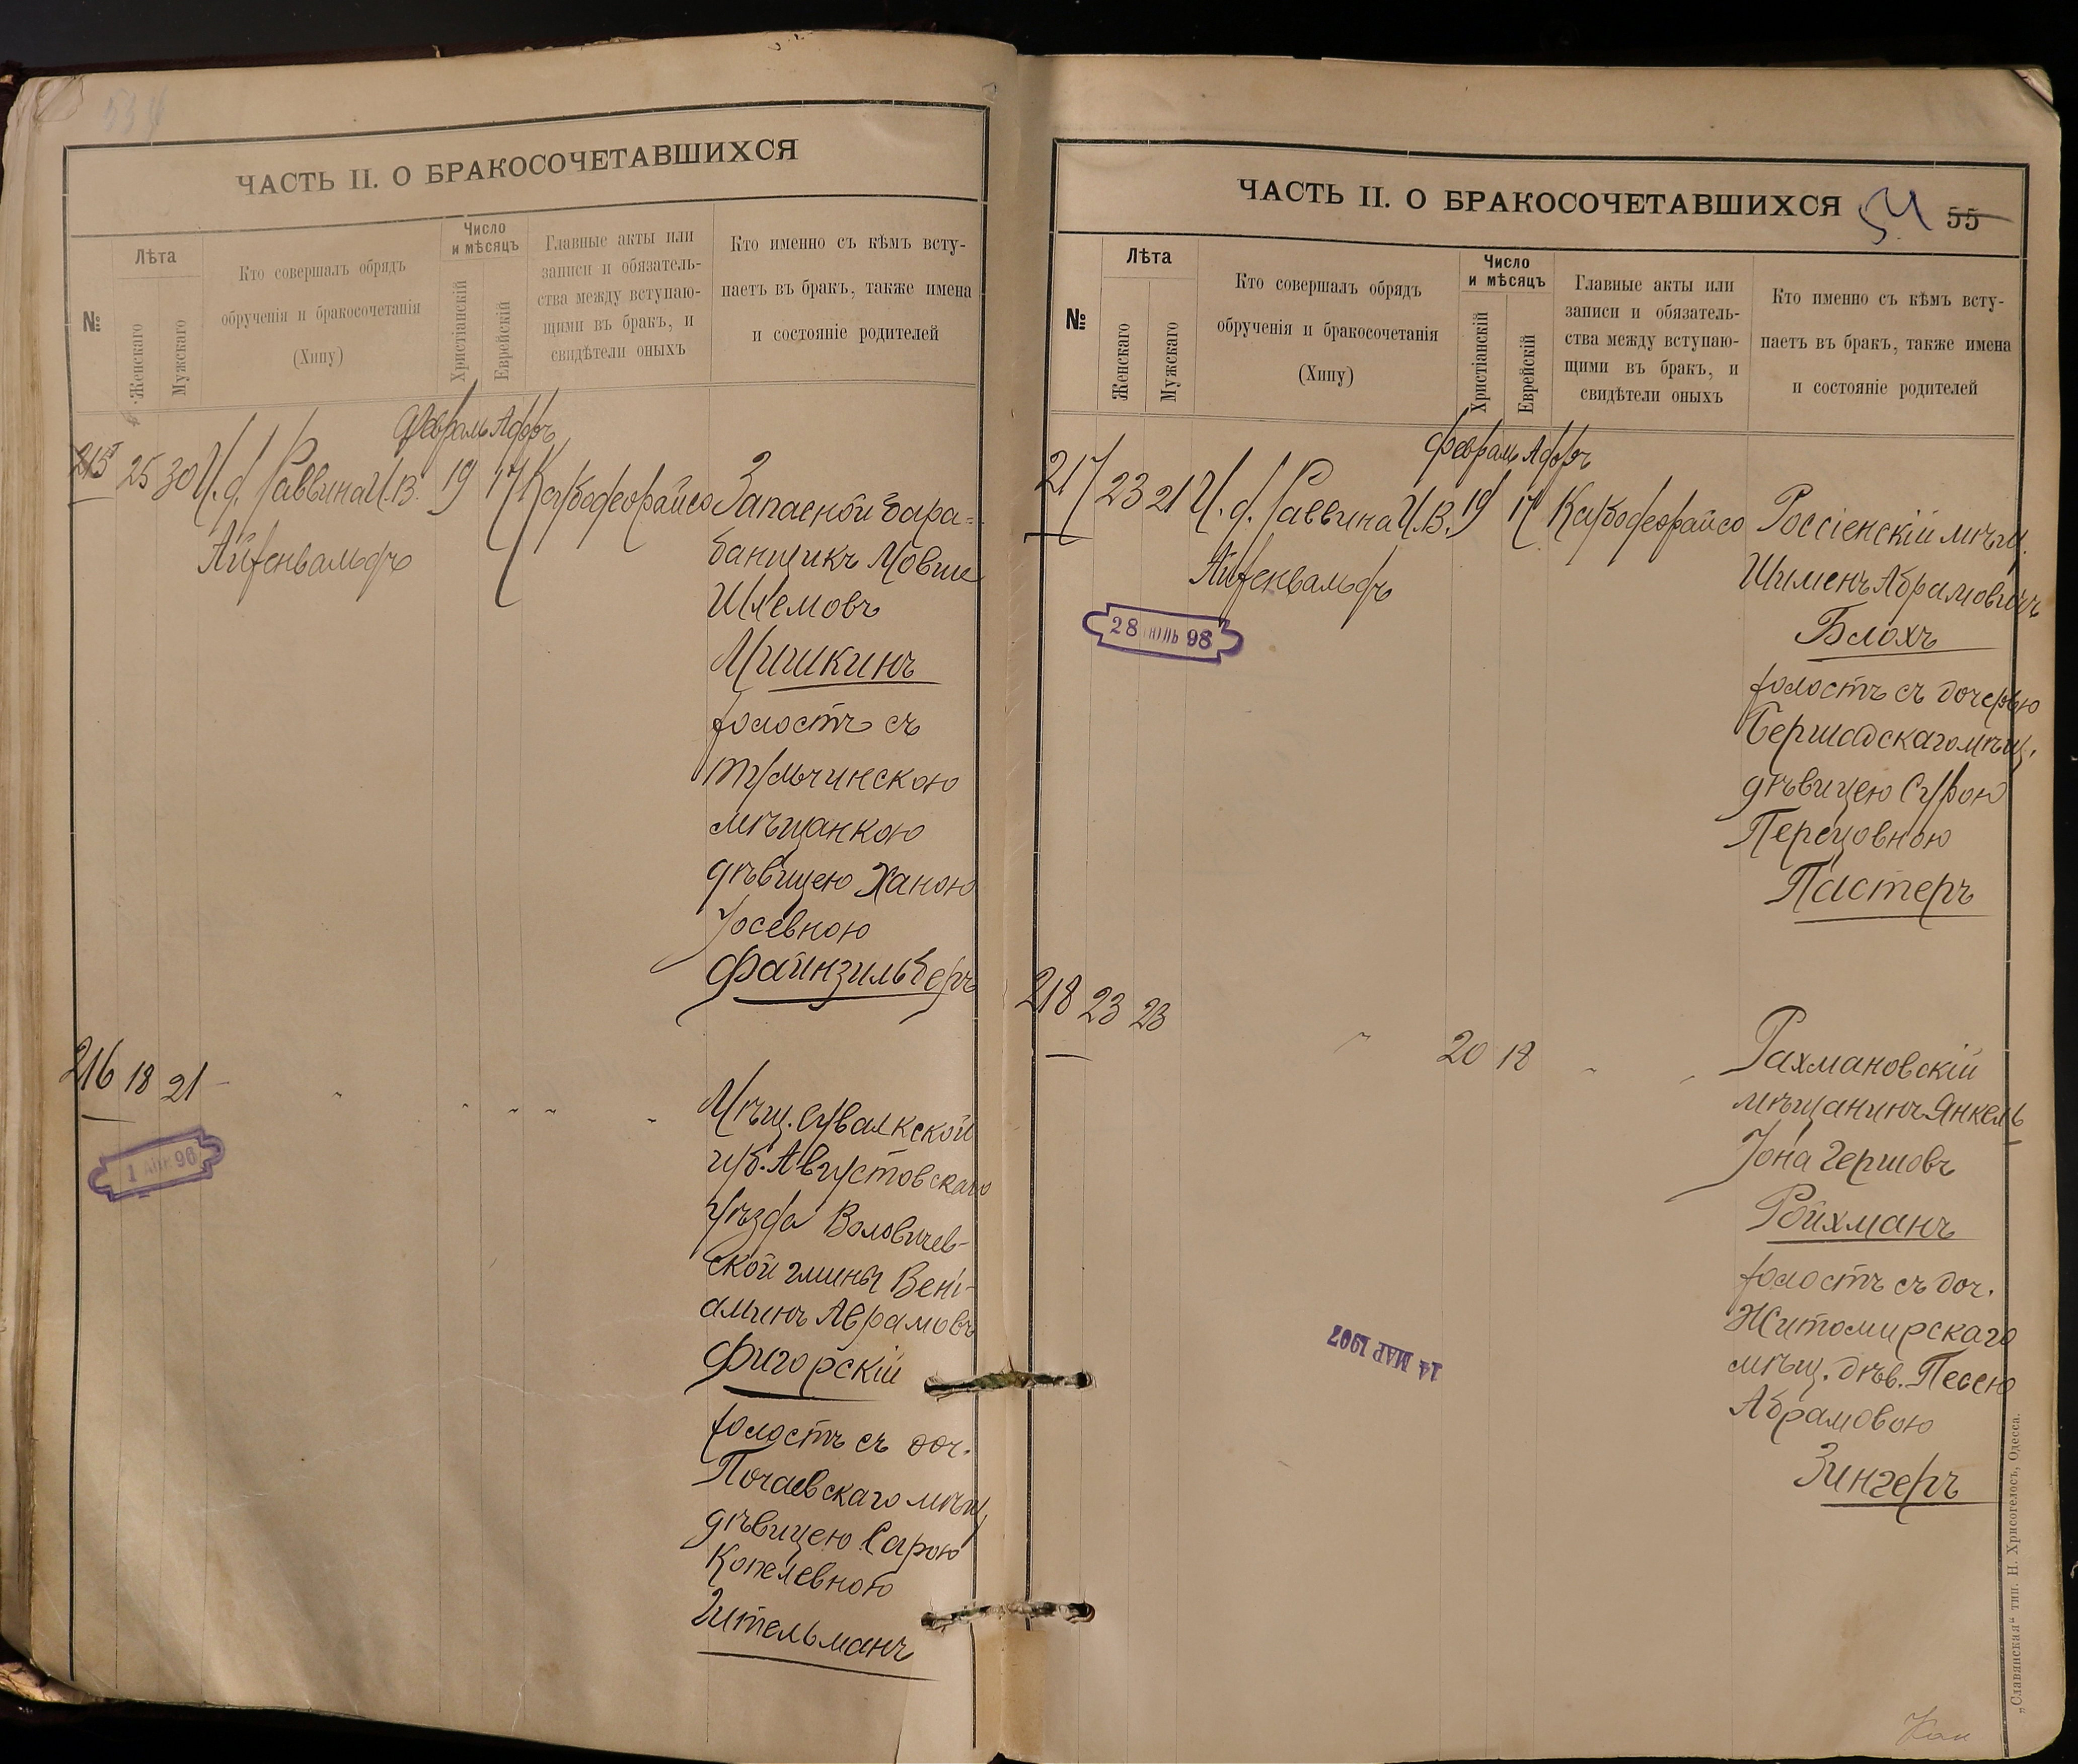 534
ЧАСТЬ II. О БРАКОСОЧЕТАВШИХСЯ
№
Лѣта
Женскаго
Мужскаго
Кто совершалъ обрядъ
обрученія и бракосочетанія
(Хипу)
Число
и мѣсяцъ
Христіанскій
Еврейскій
Главные акты или
записи и обязатель-
ства между вступаю-
щими въ бракъ, и
свидѣтели оныхъ
Кто именно съ кѣмъ всту-
паетъ въ бракъ, также имена
и состояніе родителей
Февраль Адоръ
215 25 30 И. д. Раввина И. В. 19 17
Айзенвальдъ
Запасной бара-
банщикъ Мовше
Шлемовъ
Мишкинъ
холостъ съ
тульчинскою
мѣщанкою
дѣвицею Ханою
Іосевною
Файнзильберъ
216 18 21 " " " "
1 АПР 96
Мѣщ. Сувалкской
губ. Августовскаго
уѣзда Воловичев-
ской гмины Вені-
аминъ Аврамовъ
Фигорскій
холостъ съ доч.
Почаевскаго мѣщ.
дѣвицею Сарою
Копелевною
Гительманъ
ЧАСТЬ II. О БРАКОСОЧЕТАВШИХСЯ
54 55
№
Лѣта
Женскаго
Мужскаго
Кто совершалъ обрядъ
обрученія и бракосочетанія
(Хипу)
Число
и мѣсяцъ
Христіанскій
Еврейскій
Главные акты или
записи и обязатель-
ства между вступаю-
щими въ бракъ, и
свидѣтели оныхъ
Кто именно съ кѣмъ всту-
паетъ въ бракъ, также имена
и состояніе родителей
Февраль Адоръ
217 23 21 И. д. Раввина И. В. 19 17
Айзенвальдъ
28 ІЮЛЬ 98
Россіенскій мѣщ.
Шименъ Абрамовичъ
Блохъ
холостъ съ дочерью
Бершадскаго мѣщ.
дѣвицею Сурою
Перецовною
Пастеръ
218 23 23 " 20 18 "
Рахмановскій
мѣщанинъ Янкель
Іона Гершовъ
Ройхманъ
холостъ съ доч.
Житомирскаго
мѣщ. дѣв. Песею
Абрамовою
Зингеръ
14 МАР 1907
„Славянская“ тип. Н. Хрисогелосъ, Одесса.